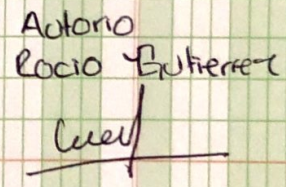 Autorio
Rocio Gutierrez